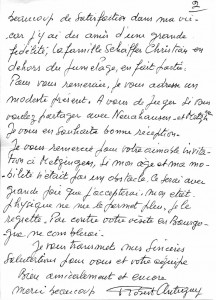 beaucoup de satisfaction dans ma vie
car j'y ai du amis d'une grande
fidélité, la famille Schaffer Christian en
dehors du jumelage, en fait partie.
Pour vous remercier, je vous adresse un
modeste présent. A vous de juger si vous
voulez partager avec Neuhausen et
Je vous en souhaite bonne réception.
Je vous remercie pour votre aimable invita-
tion à Metzingen. Si mon age et ma mo-
bilité n'était pas un obstacle. Ce serai avec
grande joie que j'accepterai. Mon état
physique ne me le permet plus. Je le
regrette. Par contre votre visite en Bourgo-
gne me comblerai.
Je vous transmet mes sincères
Salutations pour vous et votre équipe
Bien amicalement et encore
merci beaucoup